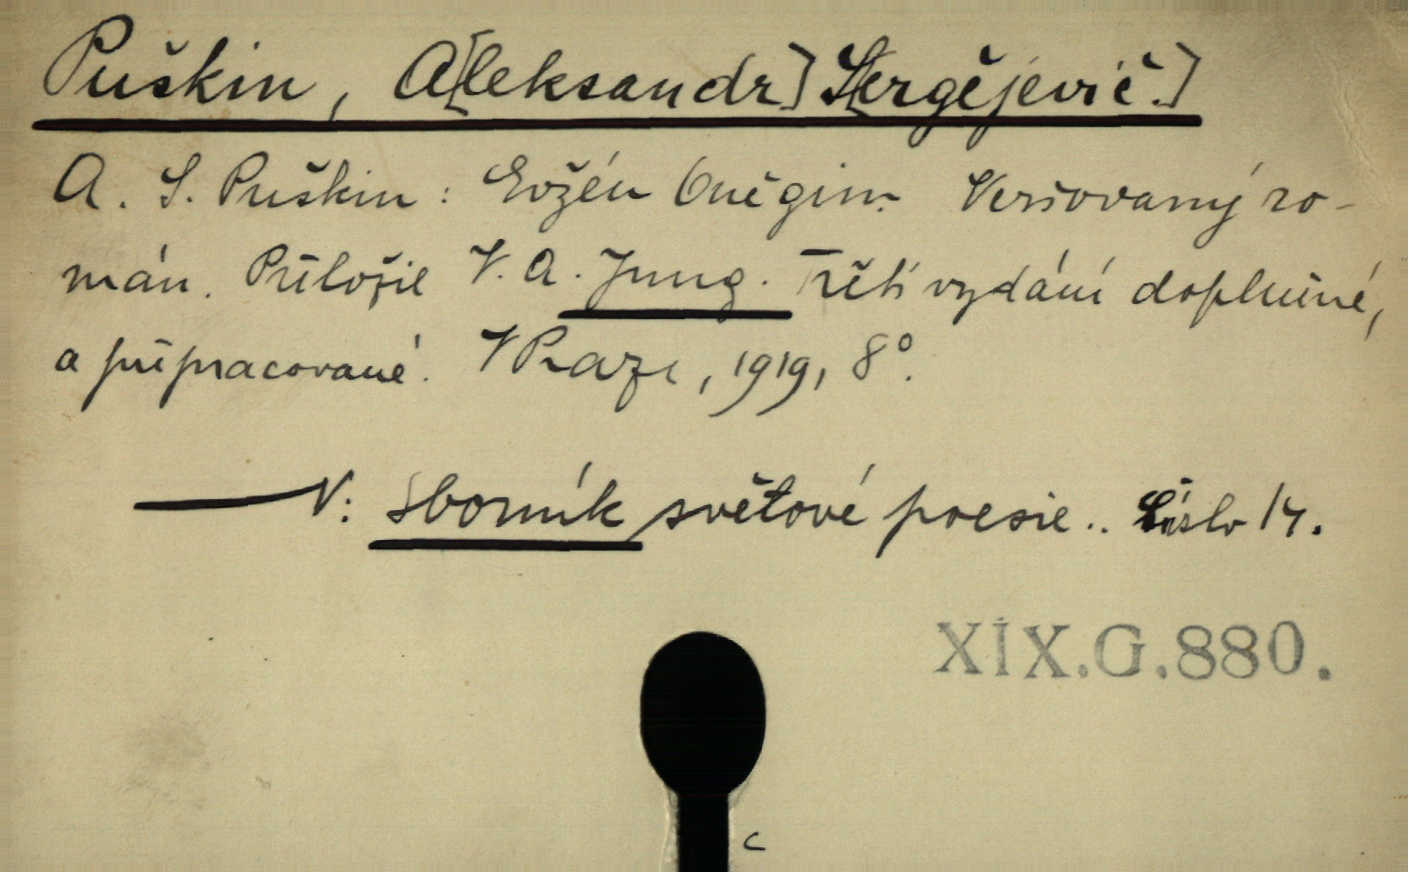 Puškin, A[leksandr] S[ergějevič.]
A. S. Puškin: Evžén Oněgin. Veršovaný ro-
mán. Přeložil V. A. Jung. Třetí vydání doplněné,
a přepracované. V Praze, 1919, 8°.
— V: Sborník světové poesie.. Číslo 14.
XIX.G.880.
c